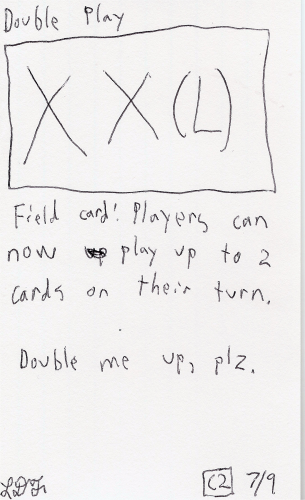 Double Play
X X (L)
Field card! Players can
now play up to 2
cards on their turn.
Double me up, plz.
C2 7/9